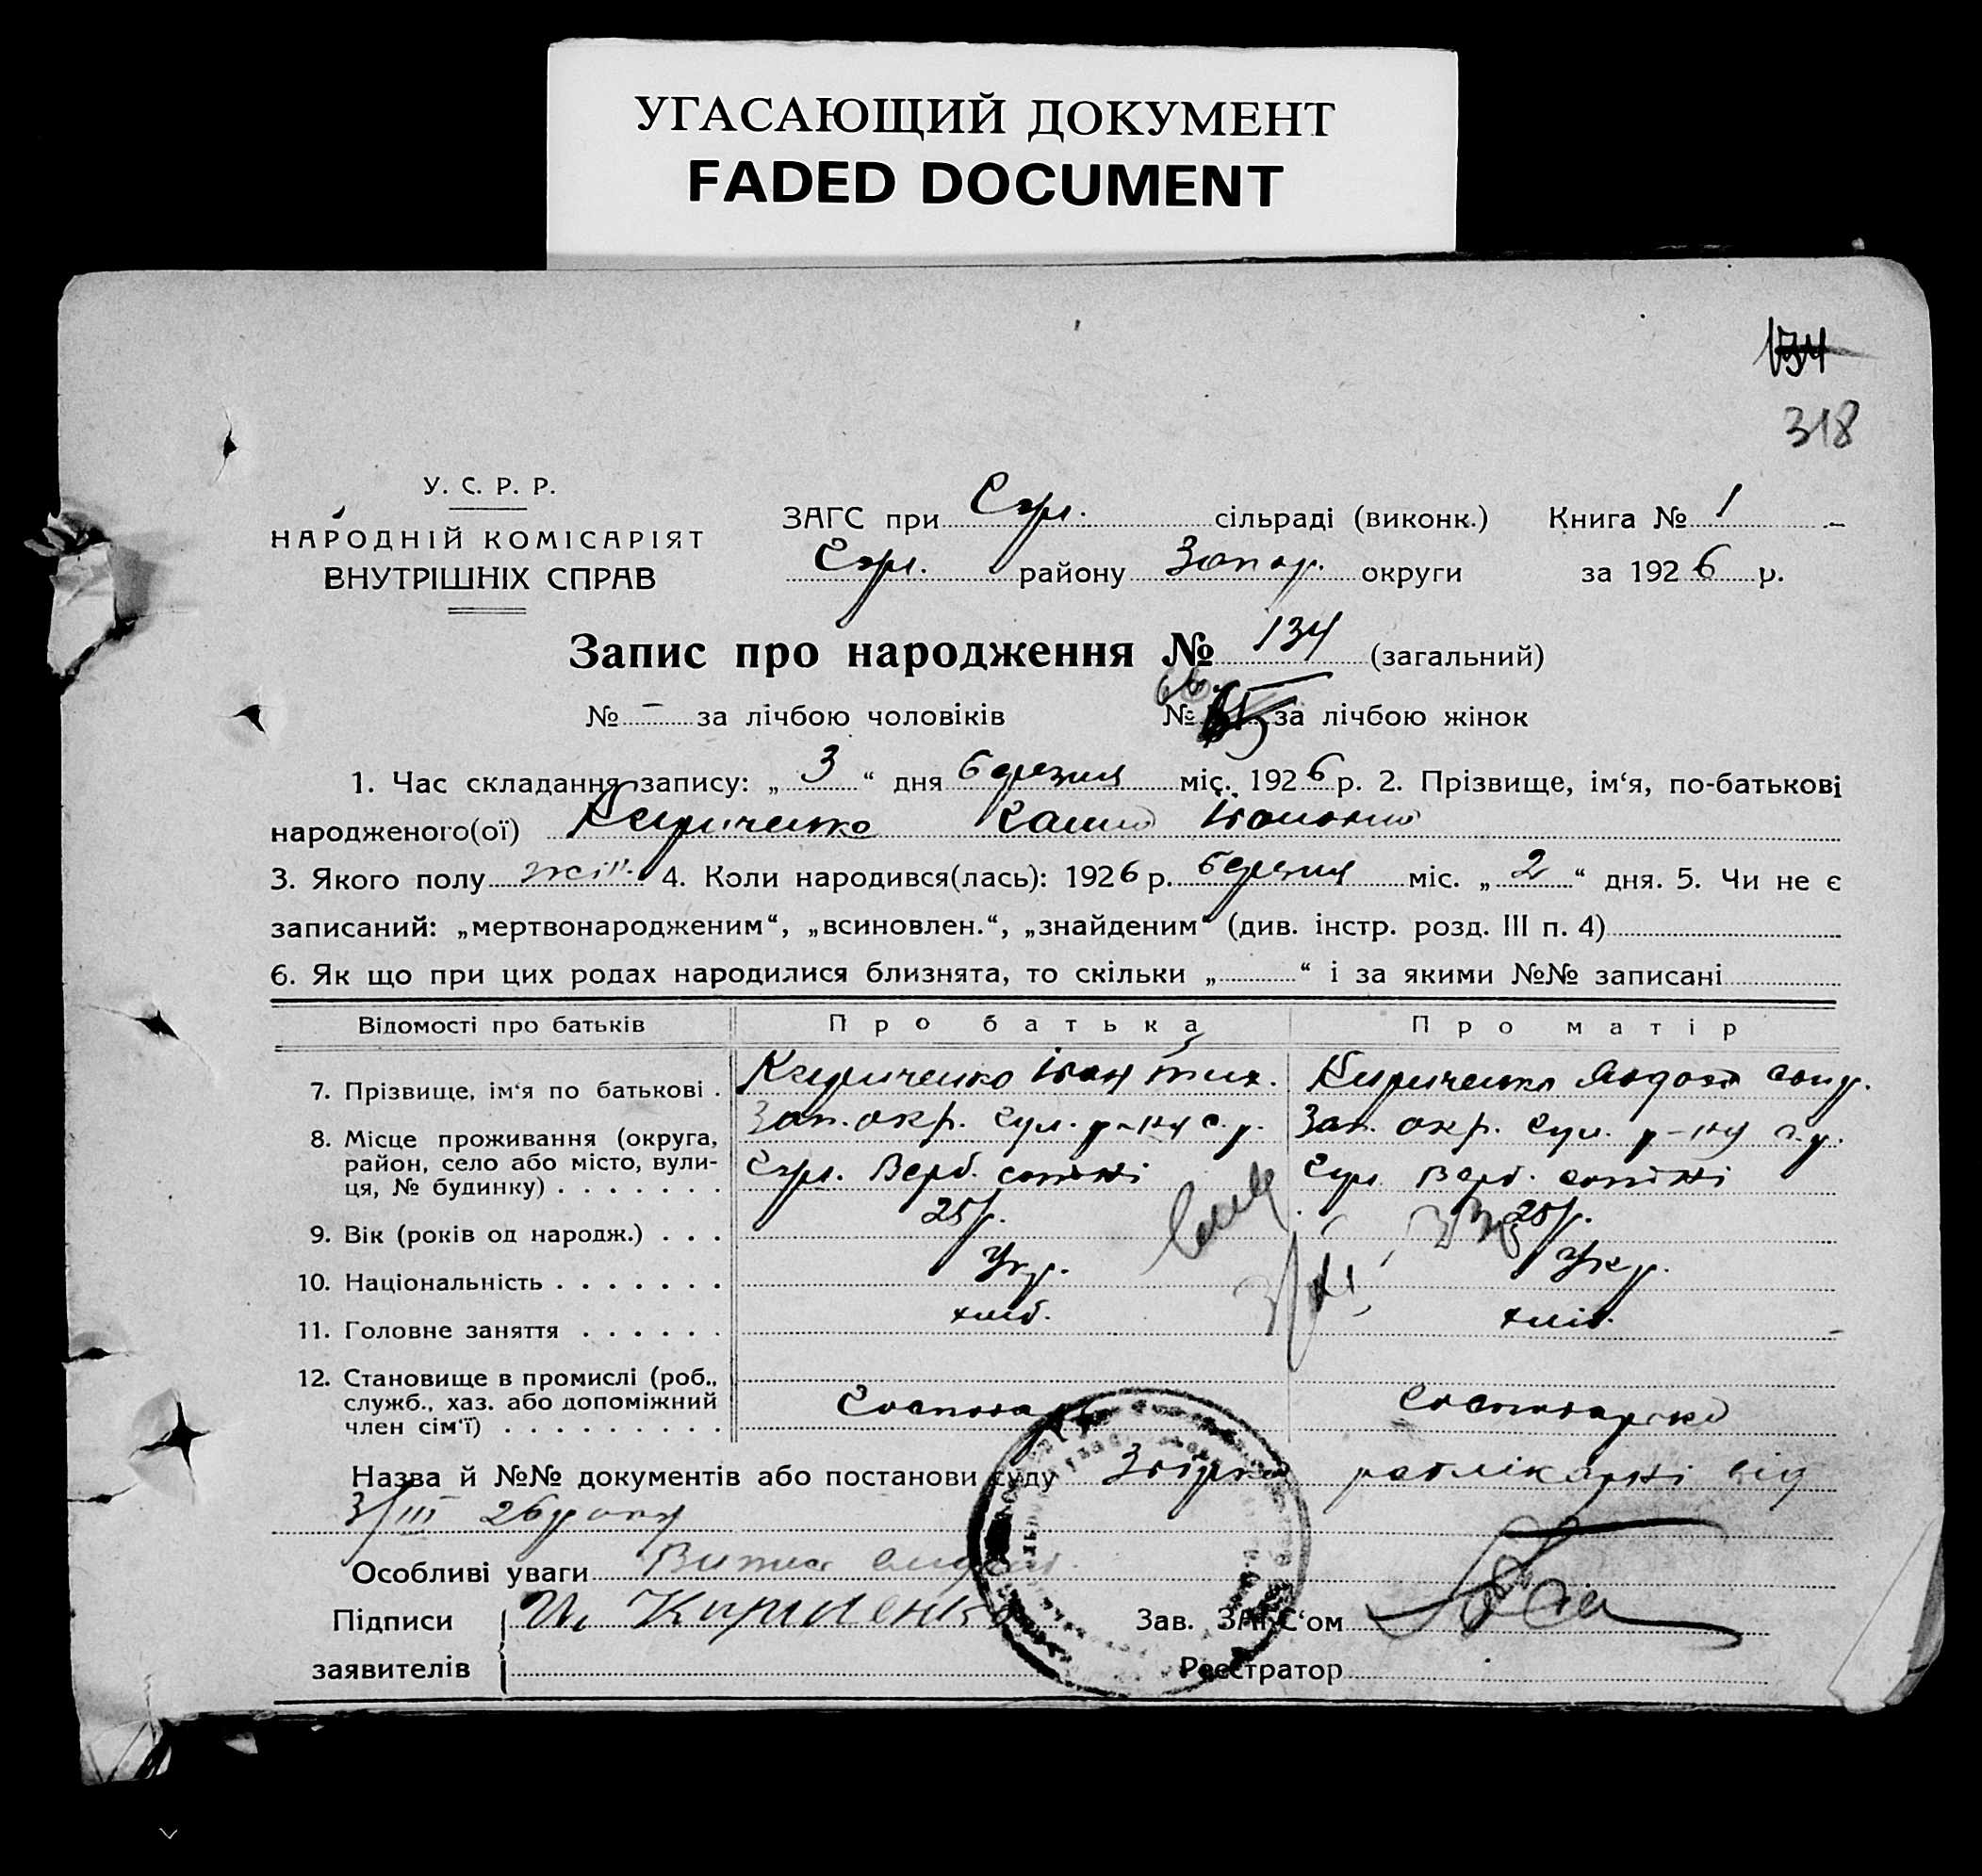 УГАСАЮЩИЙ ДОКУМЕНТ
FADED DOCUMENT
134
318
У. С. Р. Р.
НАРОДНІЙ КОМІСАРІЯТ
ВНУТРІШНІХ СПРАВ
ЗАГС при сільраді (виконк.) Книга № 1
району Запор. округи за 1926 р.
Запис про народження № 134 (загальний)
№ - за лічбою чоловіків № за лічбою жінок
1. Час складання запису: „ 3 “ дня березня міс. 1926 р. 2. Прізвище, ім‘я, по-батькові
народженого(ої) Кириченко Ганна Іванівна
3. Якого полу жін. 4. Коли народився(лась): 1926 р. березня міс. „ 2 “ дня. 5. Чи не є
записаний: „мертвонародженим“, „всиновлен.“, „знайденим“ (див. інстр. розд. III п. 4)
6. Як що при цих родах народилися близнята, то скільки „ “ і за якими №№ записані
Відомості про батьків Про батька Про матір
7. Прізвище, ім‘я по батькові . Кириченко Іван Тих. Кириченко
8. Місце проживання (округа, Зап. окр. р-ну с. р. Зап. окр. р-ну
район, село або місто, вули-
ця, № будинку) . . . . . . . Верб. сотні Верб. сотні
9. Вік (років од народж.) . . . 25 р. 25 р.
10. Національність . . . . . . . Укр. Укр.
11. Головне заняття . . . . . . хліб. хліб.
12. Становище в промислі (роб.,
служб., хаз. або допоміжний
член сім‘ї) . . . . . . . . . Господар Господарка
Назва й №№ документів або постанови суду від
3/III 26 року
Особливі уваги
Підписи И. Кириченко Зав. ЗАГС‘ом
заявителів Реєстратор